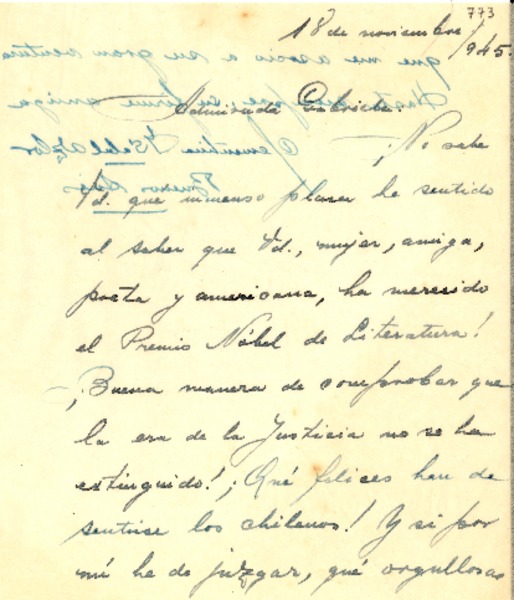 773
18 de noviembre/945.
Admirada Gabriela:
¡No sabe
Vd. que inmenso placer he sentido
al saber que Vd., mujer, amiga,
poeta y americana, ha merecido
el Premio Nóbel de Literatura!
¡Buena manera de comprobar que
la era de la Justicia no se ha
extinguido! ¡Qué felices han de
sentirse los chilenos! Y si por
mí he de juzgar, qué orgullosas
que me asocio a su gran ventura
amiga
Buenos